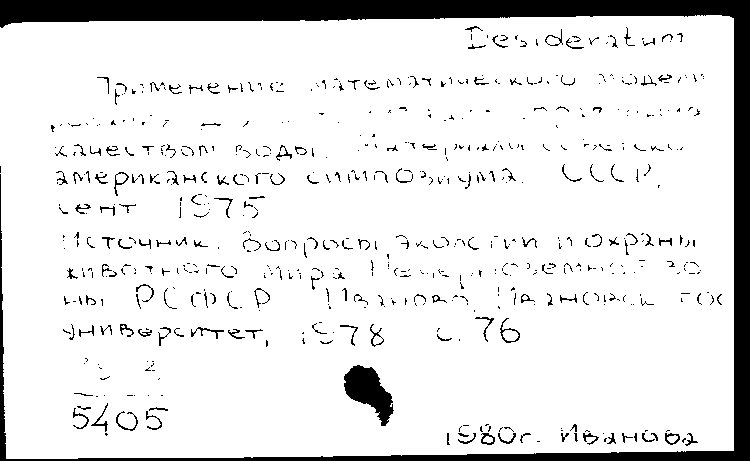 Desideratum
Применение математического модели
качеством воды. Материалы советско
американского симпозиума. СССР,
сент 1975
Источник: Вопросы экологии и охраны
животного мира Нечерноземной зо
ны РСФСР Иваново, Ивановск гос
университет, 1978 с. 76
5405
1980г. Иванова